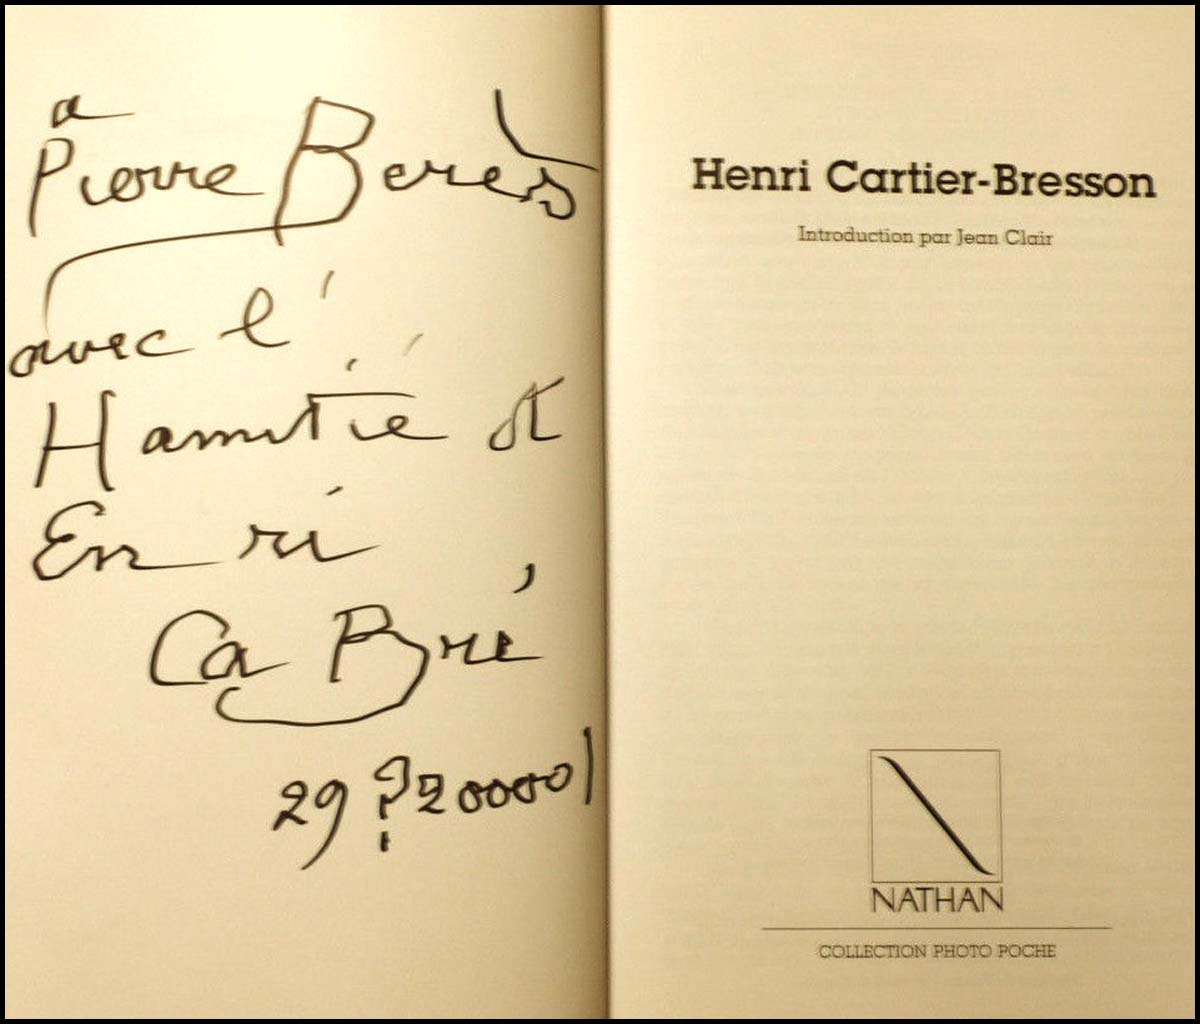 à
Pierre Berès
avec l'
Hamitié et
En ri
Ca Bré
29 ? 200001
Henri Cartier-Bresson
Introduction par Jean Clair
NATHAN
COLLECTION PHOTO POCHE